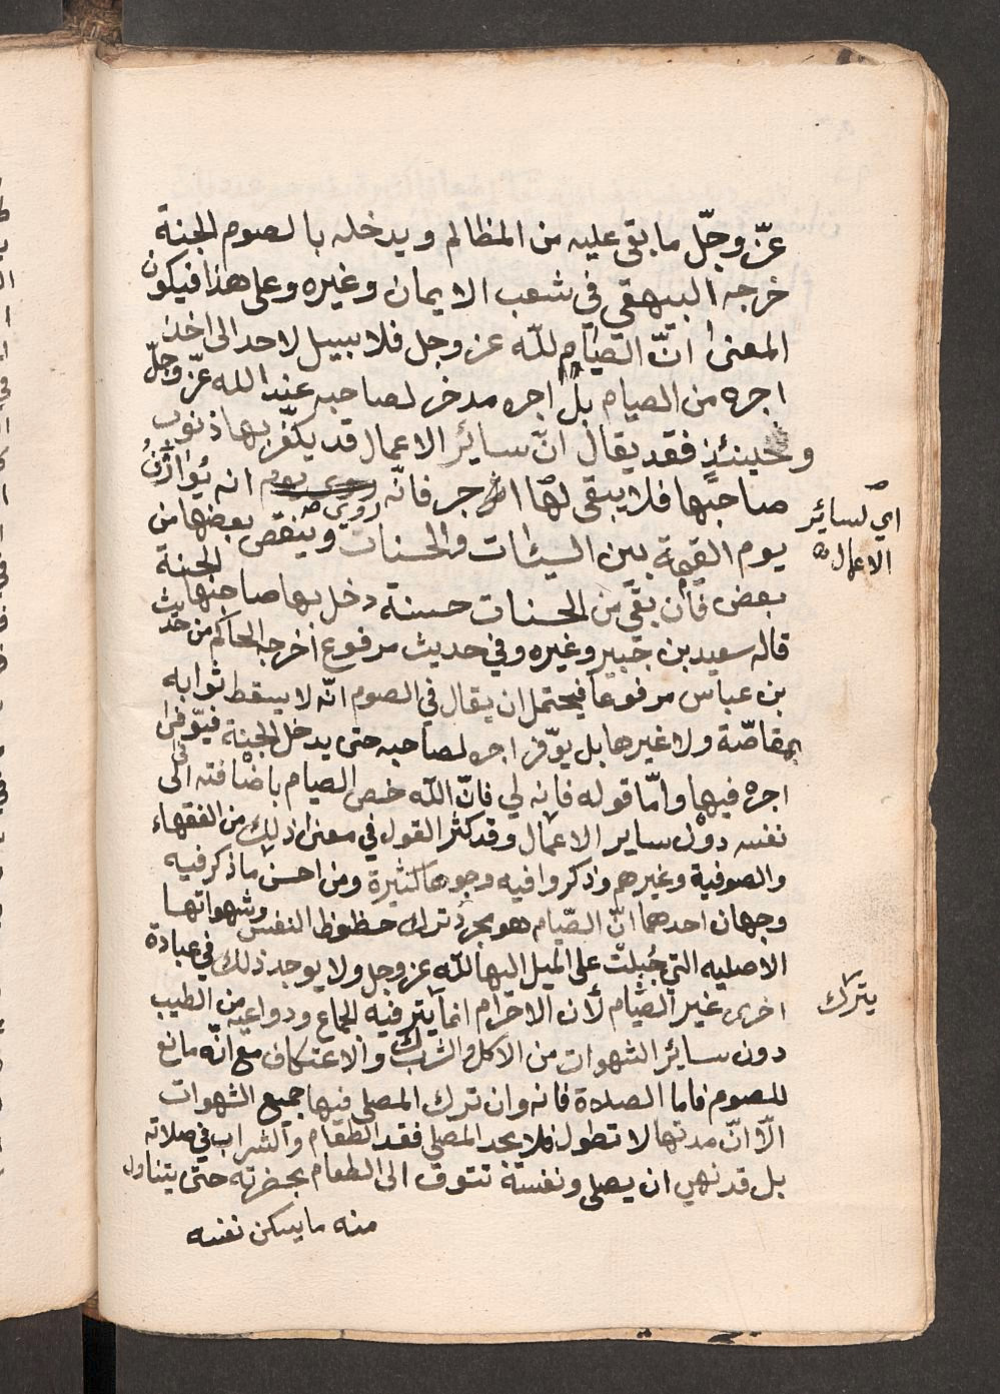 عزّ وجلّ ما بقى عليه من المظالم ويدخله بالصوم الجنة
خرجه البيهقي في شعب الايمان وغيره وعلى هذا فيكون
المعنى انّ الصيام لله عز وجل فلا سبيل لاحد الى اخذ
اجره من الصيام بل اجره مدخر لصاحبه عند الله عزّ وجلّ
وحينئذٍ فقد يقال انّ سائر الاعمال قد يكفّر بها ذنوب
صاحبها فلا يبقى لها اجر فانّه روي انه يُوازَنُ
اي لسائر الاعمال
يوم القيمة بين السيئات والحسنات وينقص بعضها من
بعض فان بقي من الحسنات حسنة دخل بها صاحبها الجنة
قاله سعيد بن جبير وغيره وفي حديث مرفوع اخرجه الحاكم من حديث
بن عباس مرفوعا فيحتمل ان يقال في الصوم انّه لا يسقط ثوابه
بمقاصّة ولا غيرها بل يوّفر اجره لصاحبه حتى يدخل الجنة فيوّفى
اجره فيها وامّا قوله فانه لي فانّ الله خص الصيام باضافته الى
نفسه دون ساير الاعمال وقد كثر القول في معنى ذلك من الفقهاء
والصوفية وغيرهم وذكروا فيه وجوها كثيرة ومن احسن ما ذكر فيه
وجهان احدهما انّ الصّيام هو مجرد ترك حظوظ النفس وشهواتها
الاصليه التي جُبِلتْ على الميل اليها لله عز وجل ولا يوجد ذلك في عبادة
اخرى غير الصّيام لأن الاحرام انما يترك فيه الجماع ودواعيه من الطيب
يترك
دون سائر الشهوات من الاكل والشرب والاعتكاف مع انّه مانع
للصوم فاما الصلاة فانه وان ترك المصلي فيها جميع الشهوات
الّا انّ مدتها لا تطول فلا يجد المصلي فقد الطعام والشراب في صلاته
بل قد نهي ان يصلي ونفسه تتوق الى الطعام بحضرته حتى يتناول
منه ما يسكن نفسه